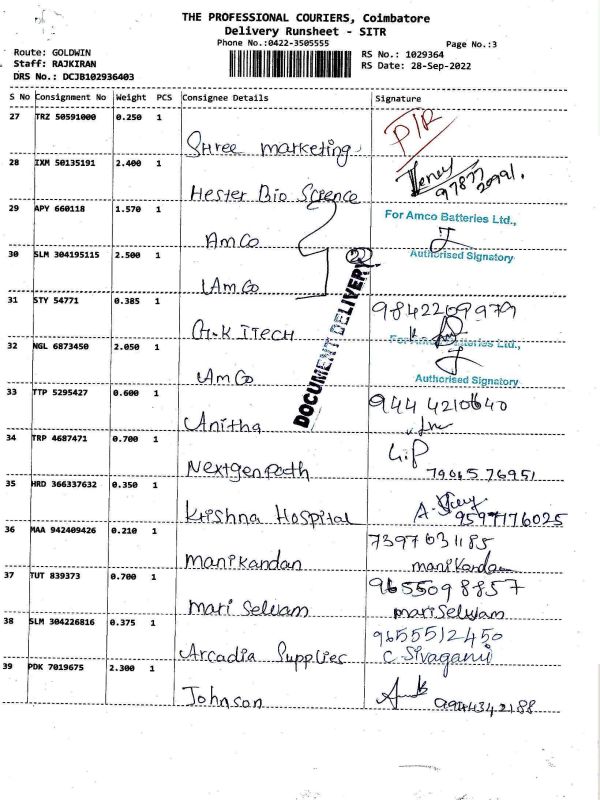 THE PROFESSIONAL COURIERS, Coimbatore
Delivery Runsheet - SITR
Phone No.:0422-3505555
Page No.:3
Route: GOLDWIN
RS No.: 1029364
Staff: RAJKIRAN
RS Date: 28-Sep-2022
DRS No.: DCJB102936403
S No Consignment No Weight PCS Consignee Details Signature
27 TRZ 50591000 0.250 1
Shree marketing P/R
28 IXM 50135191 2.400 1
Hester Bio Science 97877 20991.
29 APY 660118 1.570 1 For Amco Batteries Ltd.,
AmCo
30 SLM 304195115 2.500 1 Authorised Signatory
AmCo
DOCUMENT DELIVERY 22
31 STY 54771 0.385 1 9842209979
G.K ITECH
32 NGL 6873450 2.050 1 For Amco Batteries Ltd.,
AmCo Authorised Signatory
33 TTP 5295427 0.600 1 944 4210640
Anitha
34 TRP 4687471 0.700 1 G.P
Nextgenpath 79065 76951
35 HRD 366337632 0.350 1
Krishna Hospital 9597176025
36 MAA 942409426 0.210 1 7397631185
manikandan manikandan
37 TUT 839373 0.700 1 9655098857
mari selvam mariselvam
38 SLM 304226816 0.375 1 9655512450
Arcadia Supplies C. Sivagami
39 PDK 7019675 2.300 1
Johnson 9944342188